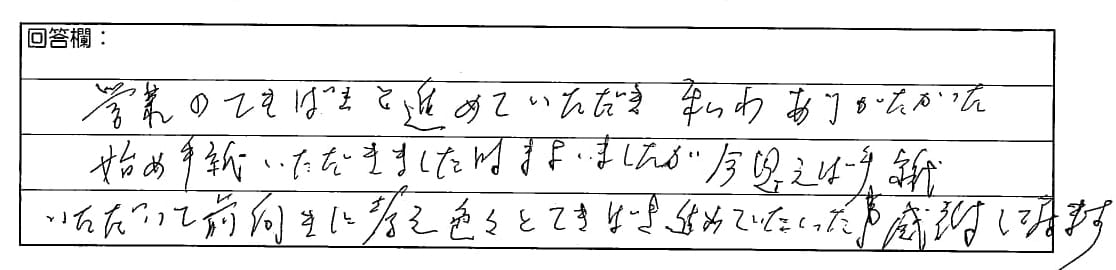 回答欄：
学業のてきぱきと進めていただき 私わ ありがたかった
始め手紙いただきました時まよいましたが 今思えば手紙
いただいて前向きに考え色々とてきぱき進めていたいった事感謝して居ます